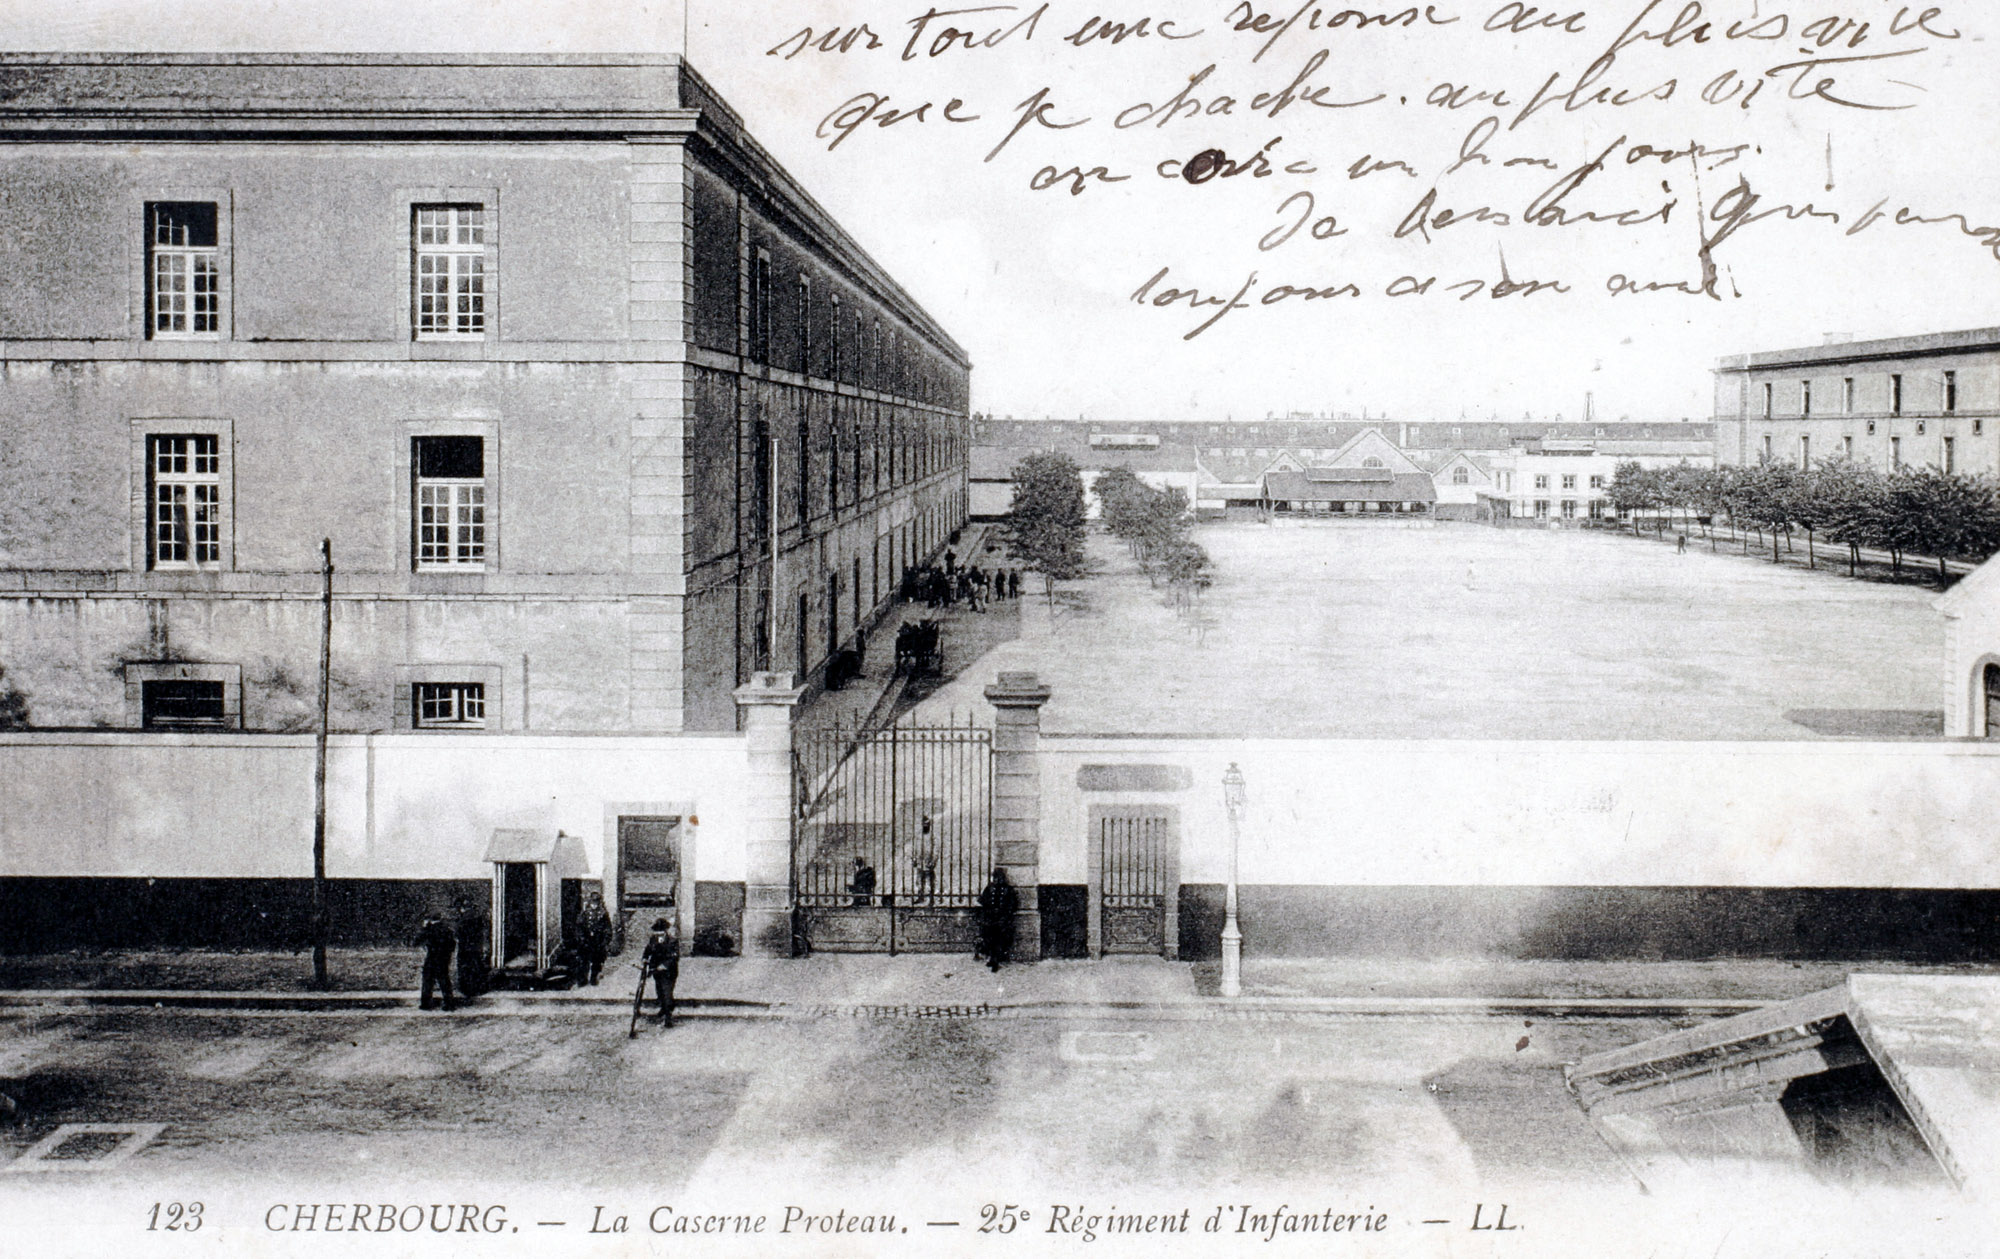 sur tout une reponse au plus vite
que je chache . au plus vite
en core un bon jours.
De ami qui panse
toujour a son ami.
123 CHERBOURG. — La Caserne Proteau. — 25e Régiment d'Infanterie — LL.